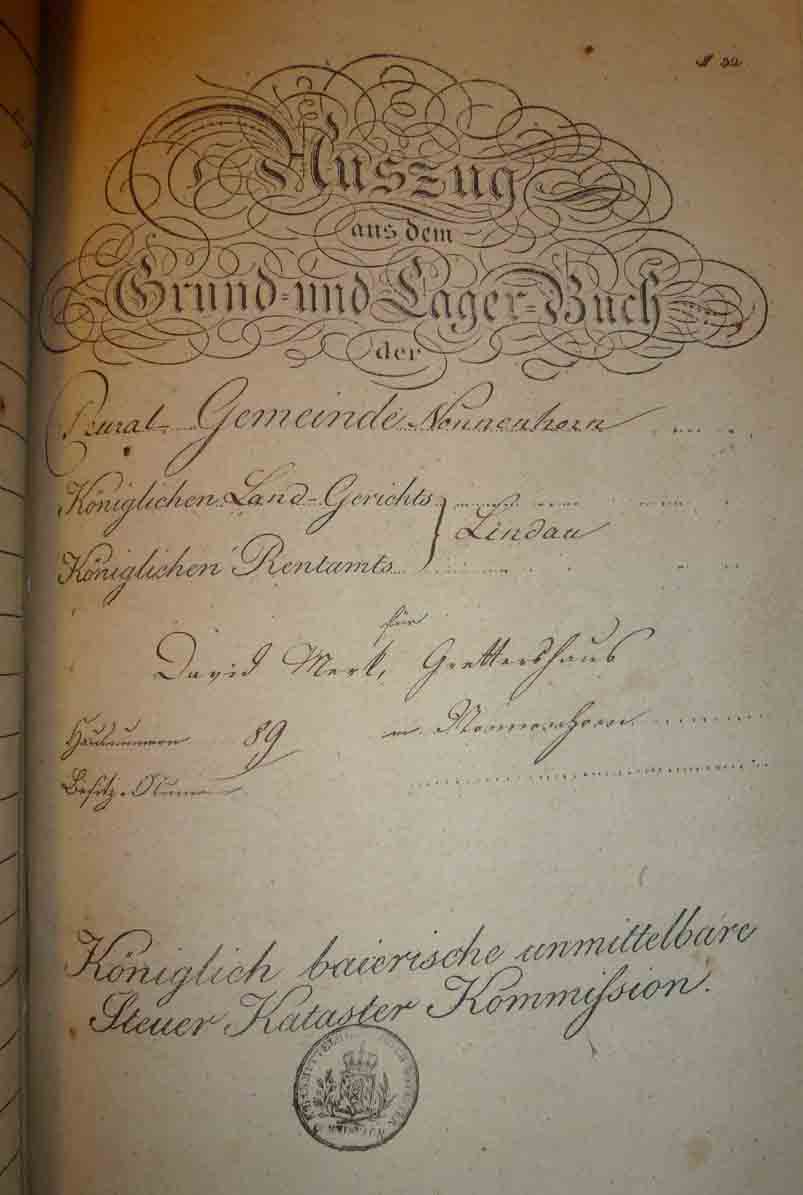 Auszug
aus dem
Grund- und Lager-Buch
der
Rural-Gemeinde Nonnenhorn
Königlichen Land-Gerichts
Lindau
Königlichen Rentamts
für
David Merk,
Hausnummern 89 in Nonnenhorn
Besitz-Numern
Königlich baierische unmittelbare
Steuer Kataster Kommission.